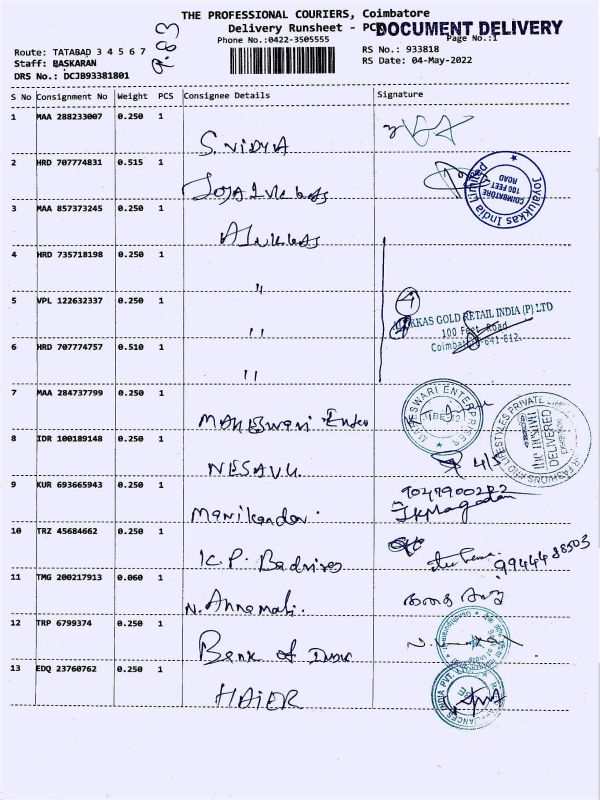 THE PROFESSIONAL COURIERS, Coimbatore
Delivery Runsheet - PCD DOCUMENT DELIVERY
Phone No.:0422-3505555 Page No.:1
Route: TATABAD 3 4 5 6 7 RS No.: 933818
Staff: BASKARAN RS Date: 04-May-2022
DRS No.: DCJB93381801
S No Consignment No Weight PCS Consignee Details Signature
1 MAA 288233007 0.250 1
S. VIDYA
2 HRD 707774831 0.515 1
Joyalukkas India Limited
COIMBATORE
100 FEET
ROAD
3 MAA 857373245 0.250 1
Alukkas
4 HRD 735718198 0.250 1
"
5 VPL 122632337 0.250 1
"
KAS GOLD RETAIL INDIA (P) LTD
100 Feet Road
6 HRD 707774757 0.510 1
"
7 MAA 284737799 0.250 1
ENTERPRISES
8 IDR 100189148 0.250 1
NESAVU
4/5
DELIVERED
9 KUR 693665943 0.250 1
Manikandan.
10 TRZ 45684662 0.250 1
K.P.
9944488503
11 TMG 200217913 0.060 1
N.
12 TRP 6799374 0.250 1
Bank of
13 EDQ 23760762 0.250 1
HAIER